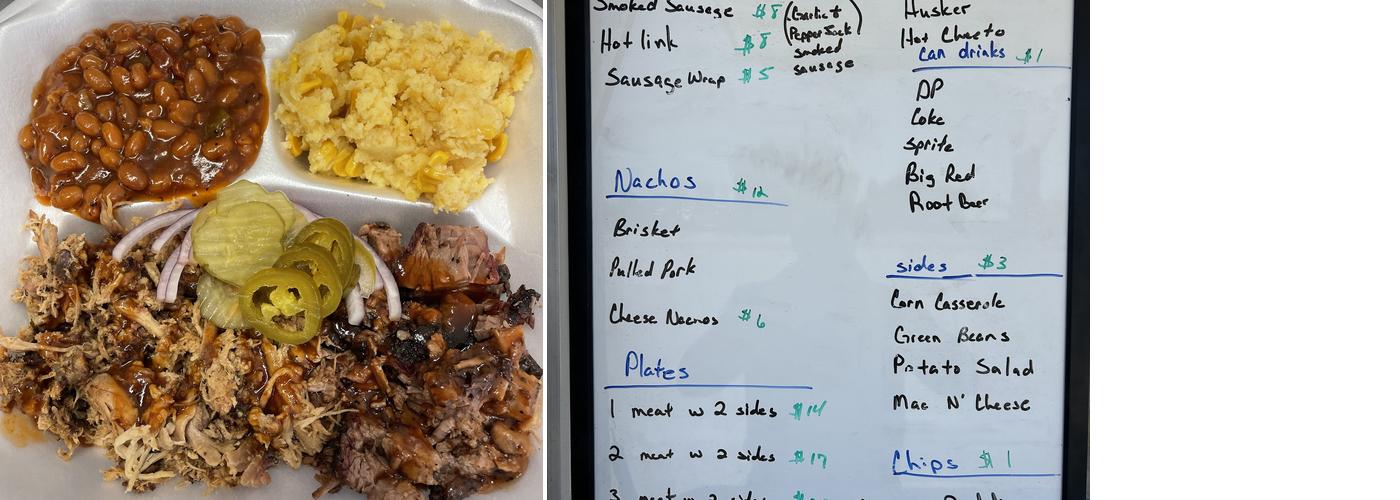 Smoked Sausage $8 (Garlic & Pepper Jack) smoked sausage
Hot link $8
Sausage Wrap $5
Nachos $12
Brisket
Pulled Pork
Cheese Nachos $6
Plates
1 meat w 2 sides $14
2 meat w 2 sides $17
3 meat w 2 sides
Husker
Hot Cheeto
Can drinks $1
DP
Coke
sprite
Big Red
Root Beer
sides $3
Corn Casserole
Green Beans
Potato Salad
Mac N' Cheese
Chips $1